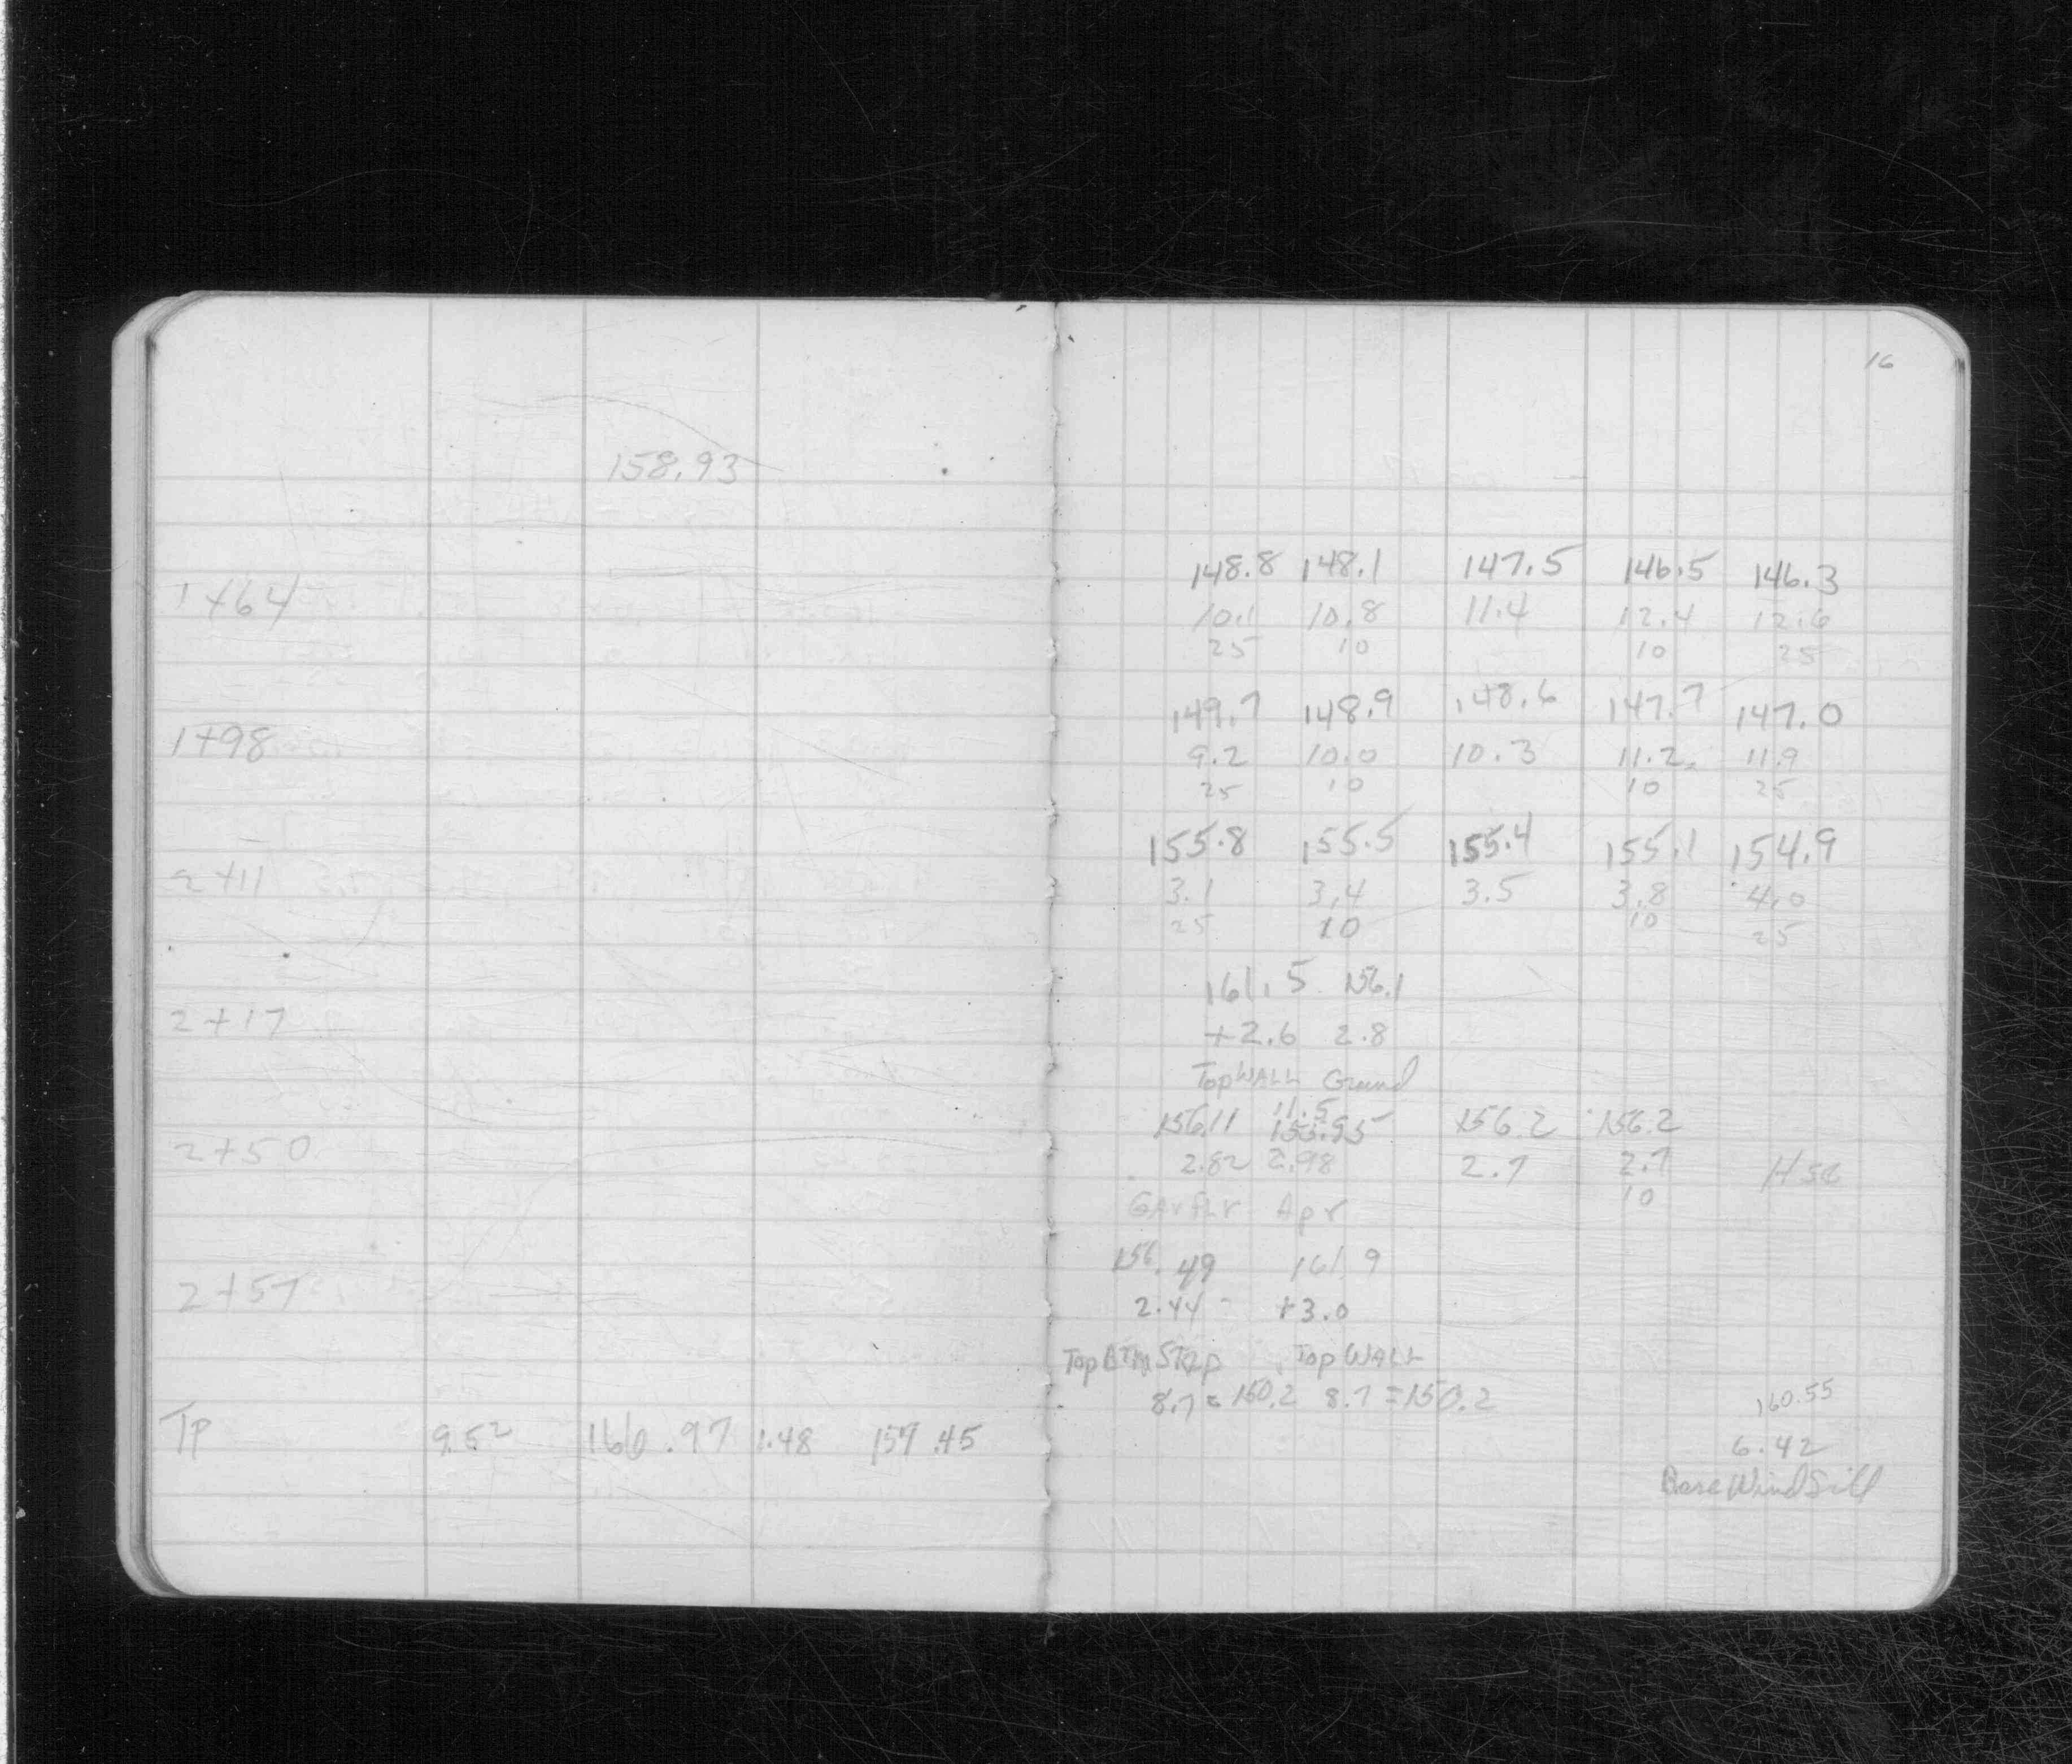 16
158.93
148.8 148.1 147.5 146.5 146.3
1+64 10.1 10.8 11.4 12.4 12.6
25 10 10 25
149.7 148.9 148.6 147.7 147.0
1+98 9.2 10.0 10.3 11.2 11.9
25 10 10 25
155.8 155.5 155.4 155.1 154.9
2+11 3.1 3.4 3.5 3.8 4.0
25 10 10 25
161.5 156.1
2+17 +2.6 2.8
Top WALL Ground
11.5
156.11 155.95 156.2 156.2
2+50 2.82 2.98 2.7 2.7 Hse
10
GAr FLr Apr
156.49 161.9
2+57 2.44 +3.0
Top BTM Step Top WALL
8.7 = 150.2 8.7 = 150.2 160.55
TP 9.52 166.97 1.48 157.45 6.42
Base Wind Sill